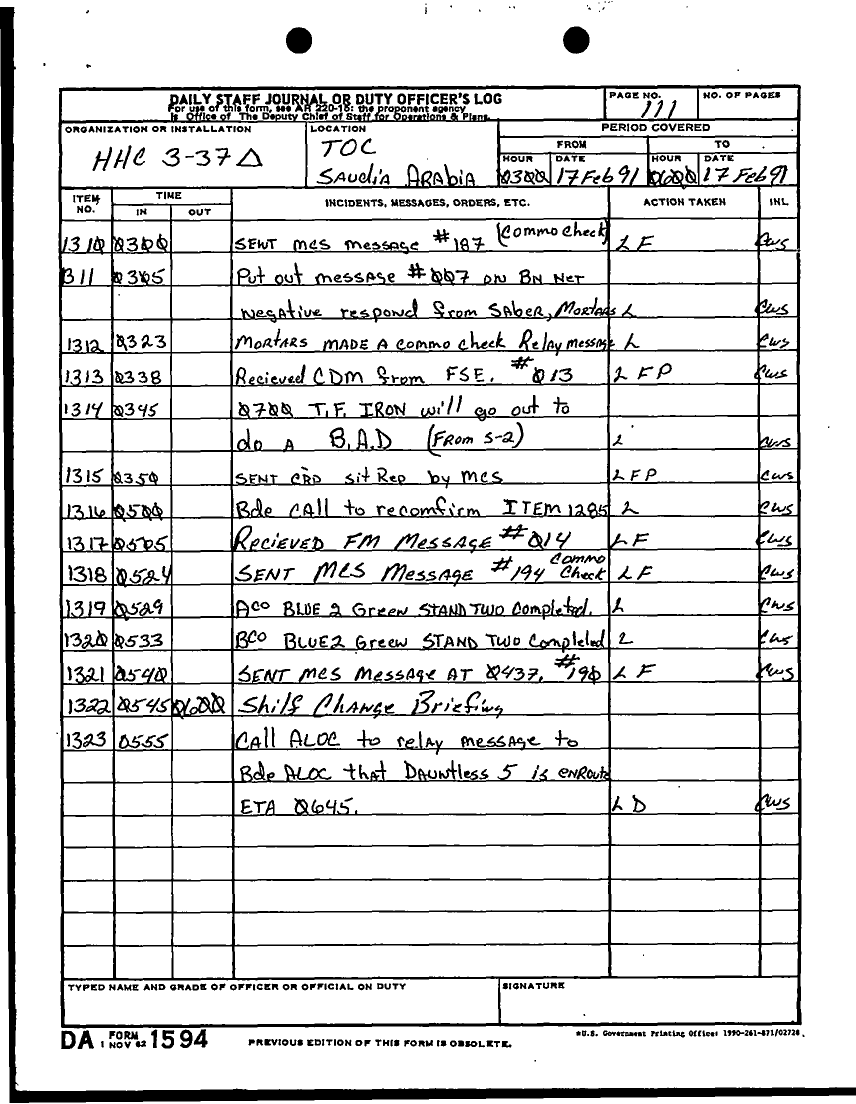 DAILY STAFF JOURNAL OR DUTY OFFICER'S LOG
For use of this form, see AR 220-15: the proponent agency
is Office of The Deputy Chief of Staff for Operations & Plans.
PAGE NO.
111
NO. OF PAGES
ORGANIZATION OR INSTALLATION
HHC 3-37 Δ
LOCATION
TOC
SAudiA ARAbiA
PERIOD COVERED
FROM
TO
HOUR DATE HOUR DATE
0300 17 Feb 91 0600 17 Feb 91
ITEM NO. TIME IN OUT INCIDENTS, MESSAGES, ORDERS, ETC. ACTION TAKEN INL
1310 0300 SENT mcs message #187 (Commo Check) L F CWS
1311 0305 Put out message #007 on BN Net
negative respond from SAber, Mortars L CWS
1312 0323 MORTARS MADE A commo check Relay message L CWS
1313 0338 Recieved CDM from FSE. #013 L F P CWS
1314 0345 0700 T.F. IRON will go out to
do A B.A.D (From S-2) L CWS
1315 0350 SENT CRD sit Rep by mcs L F P CWS
1316 0500 Bde CAll to recomfirm ITEM 1285 L CWS
1317 0505 RECIEVED FM MESSAGE #014 L F CWS
1318 0524 SENT MCS MESSAGE #194 Commo Check L F CWS
1319 0529 Aco BLUE 2 Green STAND TWO Completed. L CWS
1320 0533 Bco BLUE 2 Green STAND TWO Completed L CWS
1321 0540 SENT mcs Message AT 0437. #190 L F CWS
1322 0545 0600 Shilf Change Briefing
1323 0555 CAll ALOC to relay messAge to
Bde ALOC that DAuntless 5 is enRoute
ETA 0645. L D CWS
TYPED NAME AND GRADE OF OFFICER OR OFFICIAL ON DUTY
SIGNATURE
DA FORM 1 NOV 62 1594
PREVIOUS EDITION OF THIS FORM IS OBSOLETE.
*U.S. Government Printing Office: 1990-261-871/02728